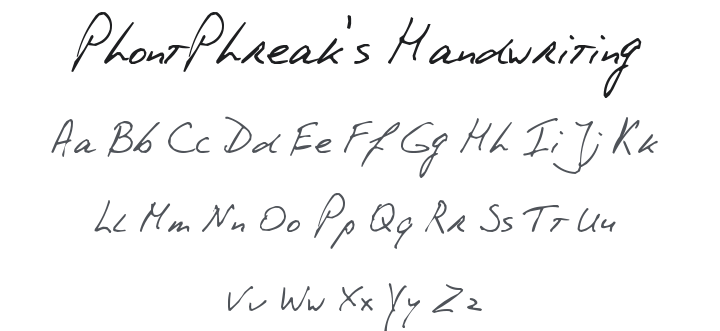 PhontPhreak's Handwriting
Aa Bb Cc Dd Ee Ff Gg Hh Ii Jj Kk
Ll Mm Nn Oo Pp Qq Rr Ss Tt Uu
Vv Ww Xx Yy Zz